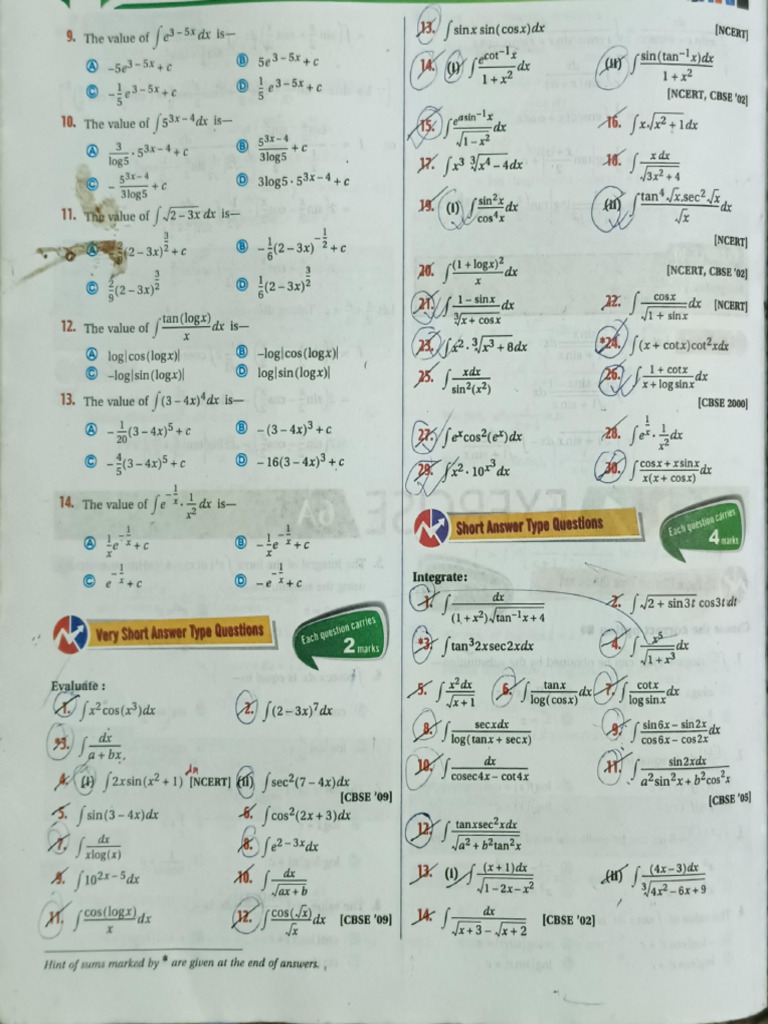 9. The value of ∫e^{3 – 5x} dx is—
Ⓐ –5e^{3 – 5x} + c Ⓑ 5e^{3 – 5x} + c
Ⓒ –1/5 e^{3 – 5x} + c Ⓓ 1/5 e^{3 – 5x} + c
10. The value of ∫5^{3x – 4}dx is—
Ⓐ 3/log5 · 5^{3x – 4} + c Ⓑ 5^{3x – 4}/3log5 + c
Ⓒ – 5^{3x – 4}/3log5 + c Ⓓ 3log5 · 5^{3x – 4} + c
11. The value of ∫√(2 – 3x) dx is—
Ⓐ (2 – 3x)^{3/2} + c Ⓑ –1/6(2 – 3x)^{–1/2} + c
Ⓒ 2/9(2 – 3x)^{3/2} Ⓓ 1/6(2 – 3x)^{3/2}
12. The value of ∫tan(logx)/x dx is—
Ⓐ log|cos(logx)| Ⓑ –log|cos(logx)|
Ⓒ –log|sin(logx)| Ⓓ log|sin(logx)|
13. The value of ∫(3 – 4x)^4 dx is—
Ⓐ –1/20(3 – 4x)^5 + c Ⓑ –(3 – 4x)^3 + c
Ⓒ –4/5(3 – 4x)^5 + c Ⓓ –16(3 – 4x)^3 + c
14. The value of ∫e^{–1/x} · 1/x² dx is—
Ⓐ 1/x e^{–1/x} + c Ⓑ –1/x e^{–1/x} + c
Ⓒ e^{–1/x} + c Ⓓ –e^{–1/x} + c
Very Short Answer Type Questions
Each question carries
2 marks
Evaluate :
1. ∫x²cos(x³)dx 2. ∫(2 – 3x)^7 dx
*3. ∫dx/(a + bx)
4. (i) ∫2xsin(x² + 1) dx [NCERT] (ii) ∫sec²(7 – 4x)dx
[CBSE '09]
5. ∫sin(3 – 4x)dx 6. ∫cos²(2x + 3)dx
7. ∫dx/(xlog(x)) 8. ∫e^{2 – 3x}dx
9. ∫10^{2x – 5}dx 10. ∫dx/√(ax + b)
11. ∫cos(logx)/x dx 12. ∫cos(√x)/√x dx [CBSE '09]
Hint of sums marked by * are given at the end of answers.
13. ∫sinx sin(cosx)dx [NCERT]
14. (i) ∫e^{cot⁻¹x}/(1 + x²) dx (ii) ∫sin(tan⁻¹x)dx/(1 + x²)
[NCERT, CBSE '02]
15. ∫e^{asin⁻¹x}/√(1 – x²) dx 16. ∫x√(x² + 1)dx
17. ∫x³ ∛(x⁴ – 4)dx 18. ∫x dx/√(3x² + 4)
19. (i) ∫sin²x/cos⁴x dx (ii) ∫tan⁴√x.sec²√x/√x dx
[NCERT]
20. ∫(1 + logx)²/x dx [NCERT, CBSE '02]
21. ∫(1 – sinx)/∛(x + cosx) dx 22. ∫cosx/√(1 + sinx) dx [NCERT]
23. ∫x² · ∛(x³ + 8)dx *24. ∫(x + cotx)cot²xdx
25. ∫xdx/sin²(x²) 26. ∫(1 + cotx)/(x + logsinx) dx
[CBSE 2000]
27. ∫e^x cos²(e^x)dx 28. ∫e^{1/x} · 1/x² dx
29. ∫x² · 10^{x³}dx 30. ∫(cosx + xsinx)/(x(x + cosx)) dx
Short Answer Type Questions
Each question carries
4 marks
Integrate :
1. ∫dx/((1 + x²)√(tan⁻¹x + 4)) 2. ∫√2 + sin3t cos3t dt
*3. ∫tan³2xsec2xdx 4. ∫x⁵/√(1 + x³) dx
5. ∫x²dx/√(x + 1) 6. ∫tanx/log(cosx) dx 7. ∫cotx/logsinx dx
8. ∫secxdx/log(tanx + secx) 9. ∫(sin6x – sin2x)/(cos6x – cos2x) dx
10. ∫dx/(cosec4x – cot4x) 11. ∫sin2xdx/(a²sin²x + b²cos²x)
[CBSE '05]
12. ∫tanxsec²xdx/√(a² + b²tan²x)
13. (i) ∫(x + 1)dx/√(1 – 2x – x²) (ii) ∫(4x – 3)dx/∛(4x² – 6x + 9)
14. ∫dx/(√(x + 3) – √(x + 2)) [CBSE '02]